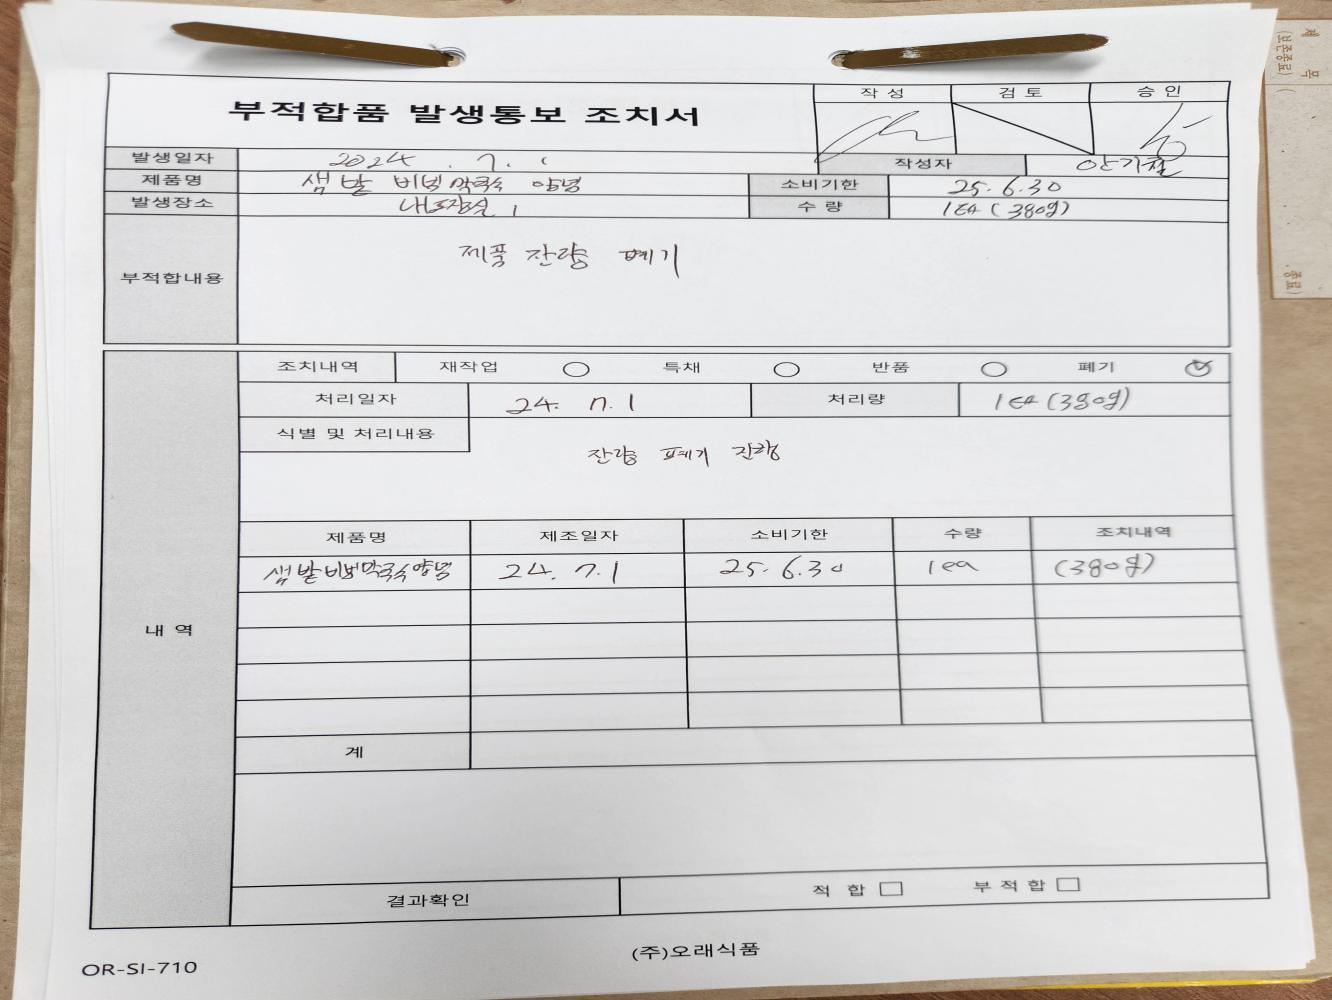 제 목
(보존종료)
부적합품 발생통보 조치서
작 성 검 토 승 인
발생일자 2024 . 7. 1 작성자 안기철
제품명 샘밭 비빔막국수 양념 소비기한 25. 6. 30
발생장소 내포장실 1 수 량 1EA (380g)
부적합내용 제품 잔량 폐기
조치내역 재작업 특채 반품 폐기
처리일자 24. 7. 1 처리량 1EA (380g)
식별 및 처리내용
잔량 폐기 진행
제품명 제조일자 소비기한 수량 조치내역
샘밭비빔막국수양념 24. 7. 1 25. 6. 30 1ea (380g)
내 역
계
결과확인 적 합 부 적 합
OR-SI-710 (주)오래식품
종료)